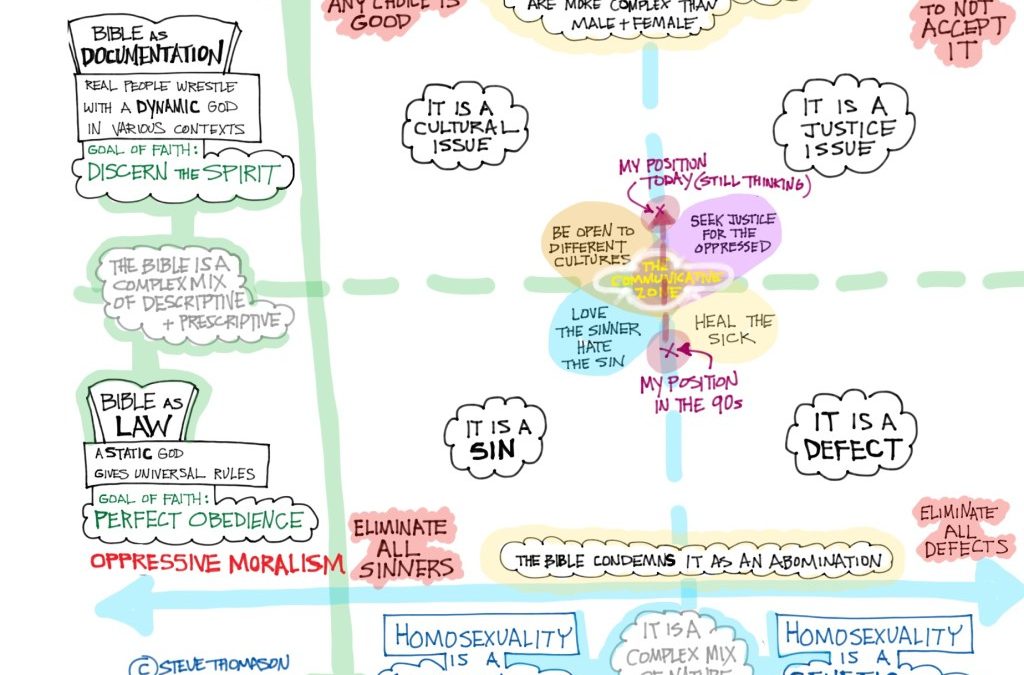 ANY CHOICE IS
GOOD
ARE MORE COMPLEX THAN
MALE + FEMALE
TO NOT
ACCEPT
IT
BIBLE AS
DOCUMENTATION
REAL PEOPLE WRESTLE
WITH A DYNAMIC GOD
IN VARIOUS CONTEXTS
GOAL OF FAITH:
DISCERN THE SPIRIT
IT IS A
CULTURAL
ISSUE
IT IS A
JUSTICE
ISSUE
MY POSITION
TODAY (STILL THINKING)
BE OPEN TO
DIFFERENT
CULTURES
SEEK JUSTICE
FOR THE
OPPRESSED
THE
COMMUNICATIVE
ZONE
THE BIBLE IS A
COMPLEX MIX
OF DESCRIPTIVE
+ PRESCRIPTIVE
LOVE
THE SINNER
HATE
THE SIN
HEAL THE
SICK
MY POSITION
IN THE 90s
BIBLE AS
LAW
A STATIC GOD
GIVES UNIVERSAL RULES
GOAL OF FAITH:
PERFECT OBEDIENCE
IT IS A
SIN
IT IS A
DEFECT
OPPRESSIVE MORALISM
ELIMINATE
ALL
SINNERS
THE BIBLE CONDEMNS IT AS AN ABOMINATION
ELIMINATE
ALL
DEFECTS
© STEVE THOMASON
HOMOSEXUALITY
IS A
IT IS A
COMPLEX MIX
OF NATURE
HOMOSEXUALITY
IS A